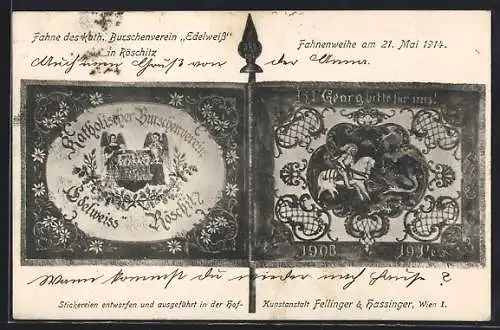 Fahne des Kath. Burschenverein „Edelweiß"
in Röschitz
Fahnenweihe am 21. Mai 1914.
Auch einen Gruß von der Anna.
Katholischer Burschenverein
„Edelweiss" Röschitz
Hl. Georg bitte für uns!
1908
Wann kommst du wieder nach Hause?
Stickereien entworfen und ausgeführt in der Hof-Kunstanstalt Fellinger & Hassinger, Wien I.